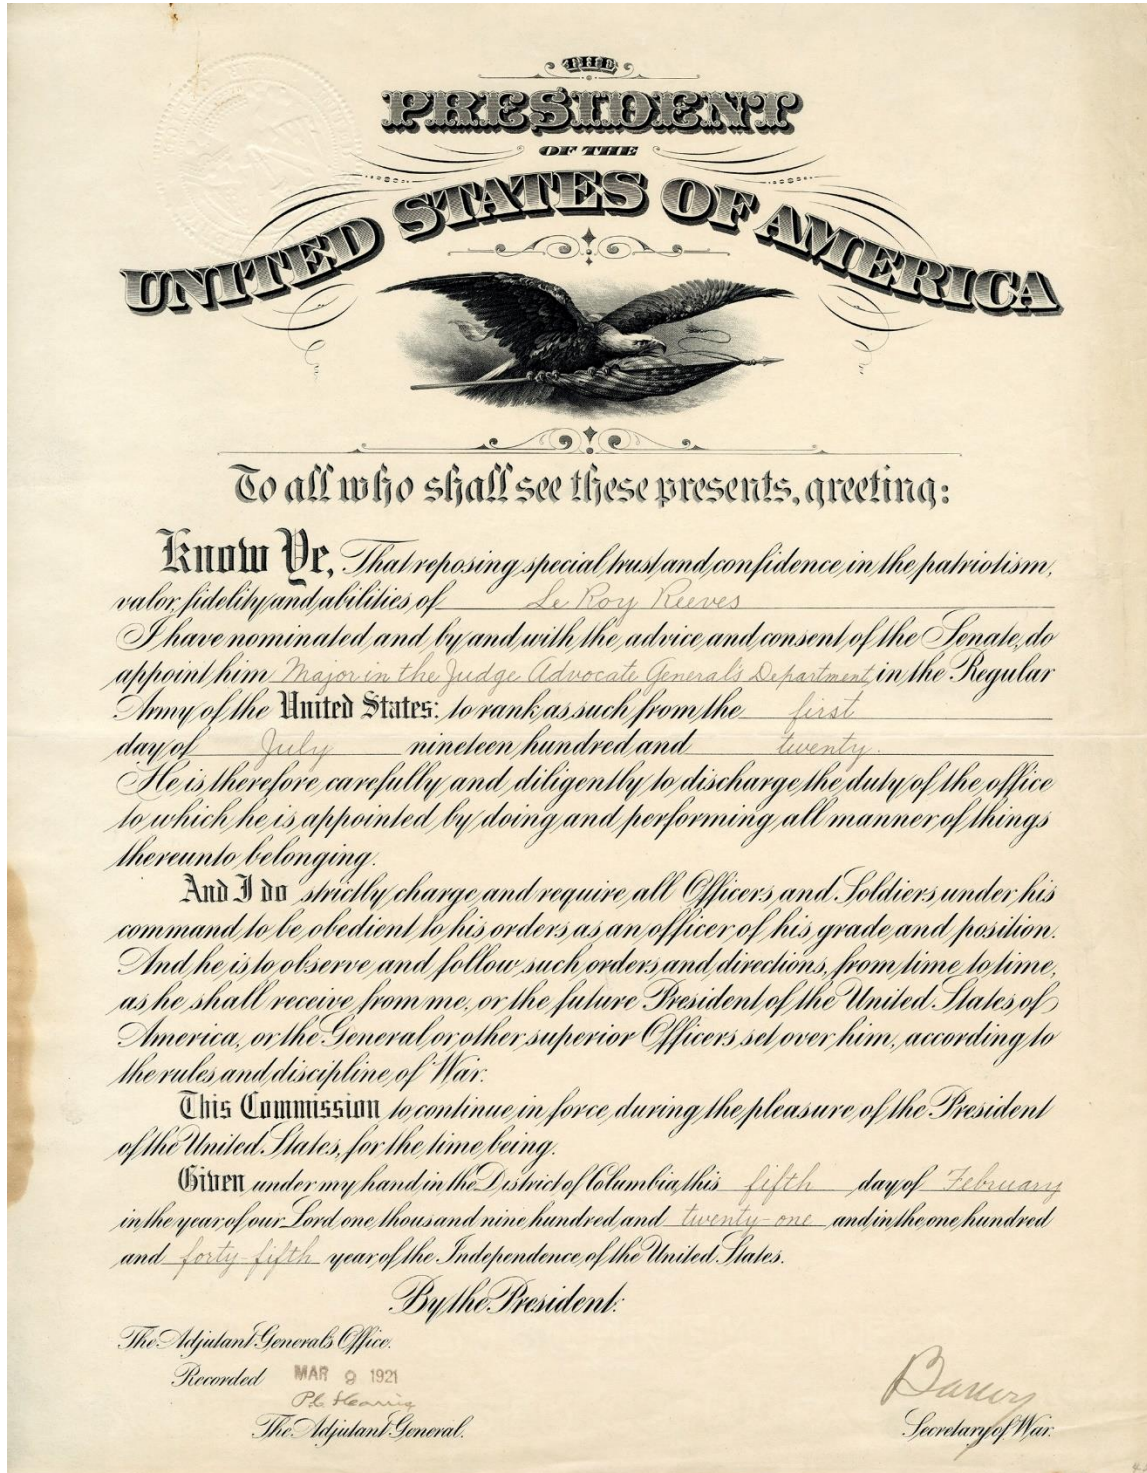 THE
PRESIDENT
OF THE
UNITED STATES OF AMERICA
To all who shall see these presents, greeting:
Know Ye, That reposing special trust and confidence in the patriotism,
valor, fidelity and abilities of Le Roy Reeves
I have nominated and by and with the advice and consent of the Senate, do
appoint him Major in the Judge Advocate General's Department, in the Regular
Army of the United States: to rank as such from the first
day of July nineteen hundred and twenty.
He is therefore carefully and diligently to discharge the duty of the office
to which he is appointed by doing and performing all manner of things
thereunto belonging.
And I do strictly charge and require all Officers and Soldiers under his
command to be obedient to his orders as an officer of his grade and position.
And he is to observe and follow such orders and directions, from time to time,
as he shall receive from me, or the future President of the United States of
America, or the General or other superior Officers set over him, according to
the rules and discipline of War.
This Commission to continue in force during the pleasure of the President
of the United States, for the time being.
Given under my hand in the District of Columbia, this fifth day of February
in the year of our Lord one thousand nine hundred and twenty-one and in the one hundred
and forty-fifth year of the Independence of the United States.
By the President:
The Adjutant General's Office.
Recorded MAR 9 1921
The Adjutant General.
Secretary of War.